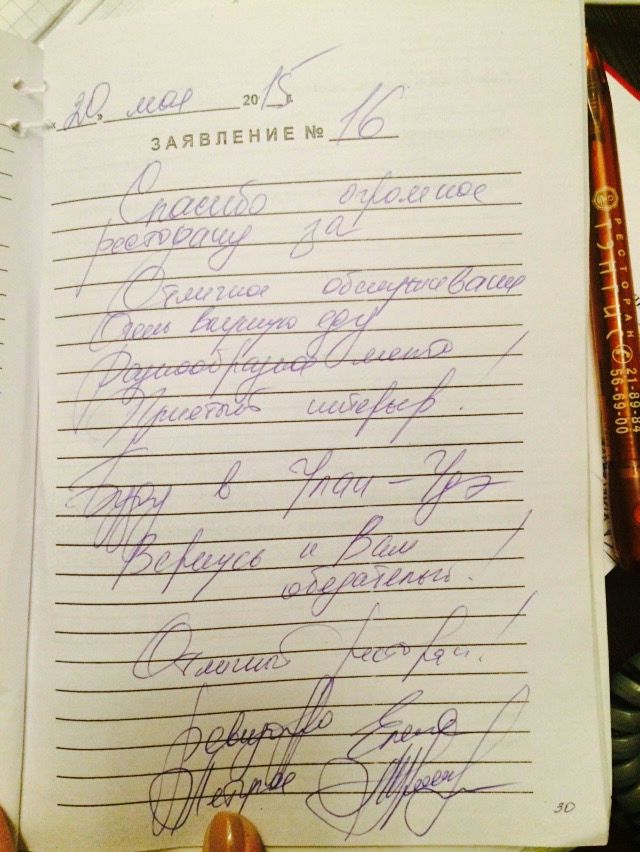 «20» мая 2015 г.
ЗАЯВЛЕНИЕ № 16
Спасибо огромное
ресторану за
Отличное обслуживание
Очень вкусную еду
Разнообразное меню!
Приятный интерьер!
Буду в Улан-Удэ
Вернусь к Вам
обязательно!
Отличный ресторан!
Елена
30
РЕСТОРАН
ТЭНГИС
21-89-84
56-69-00